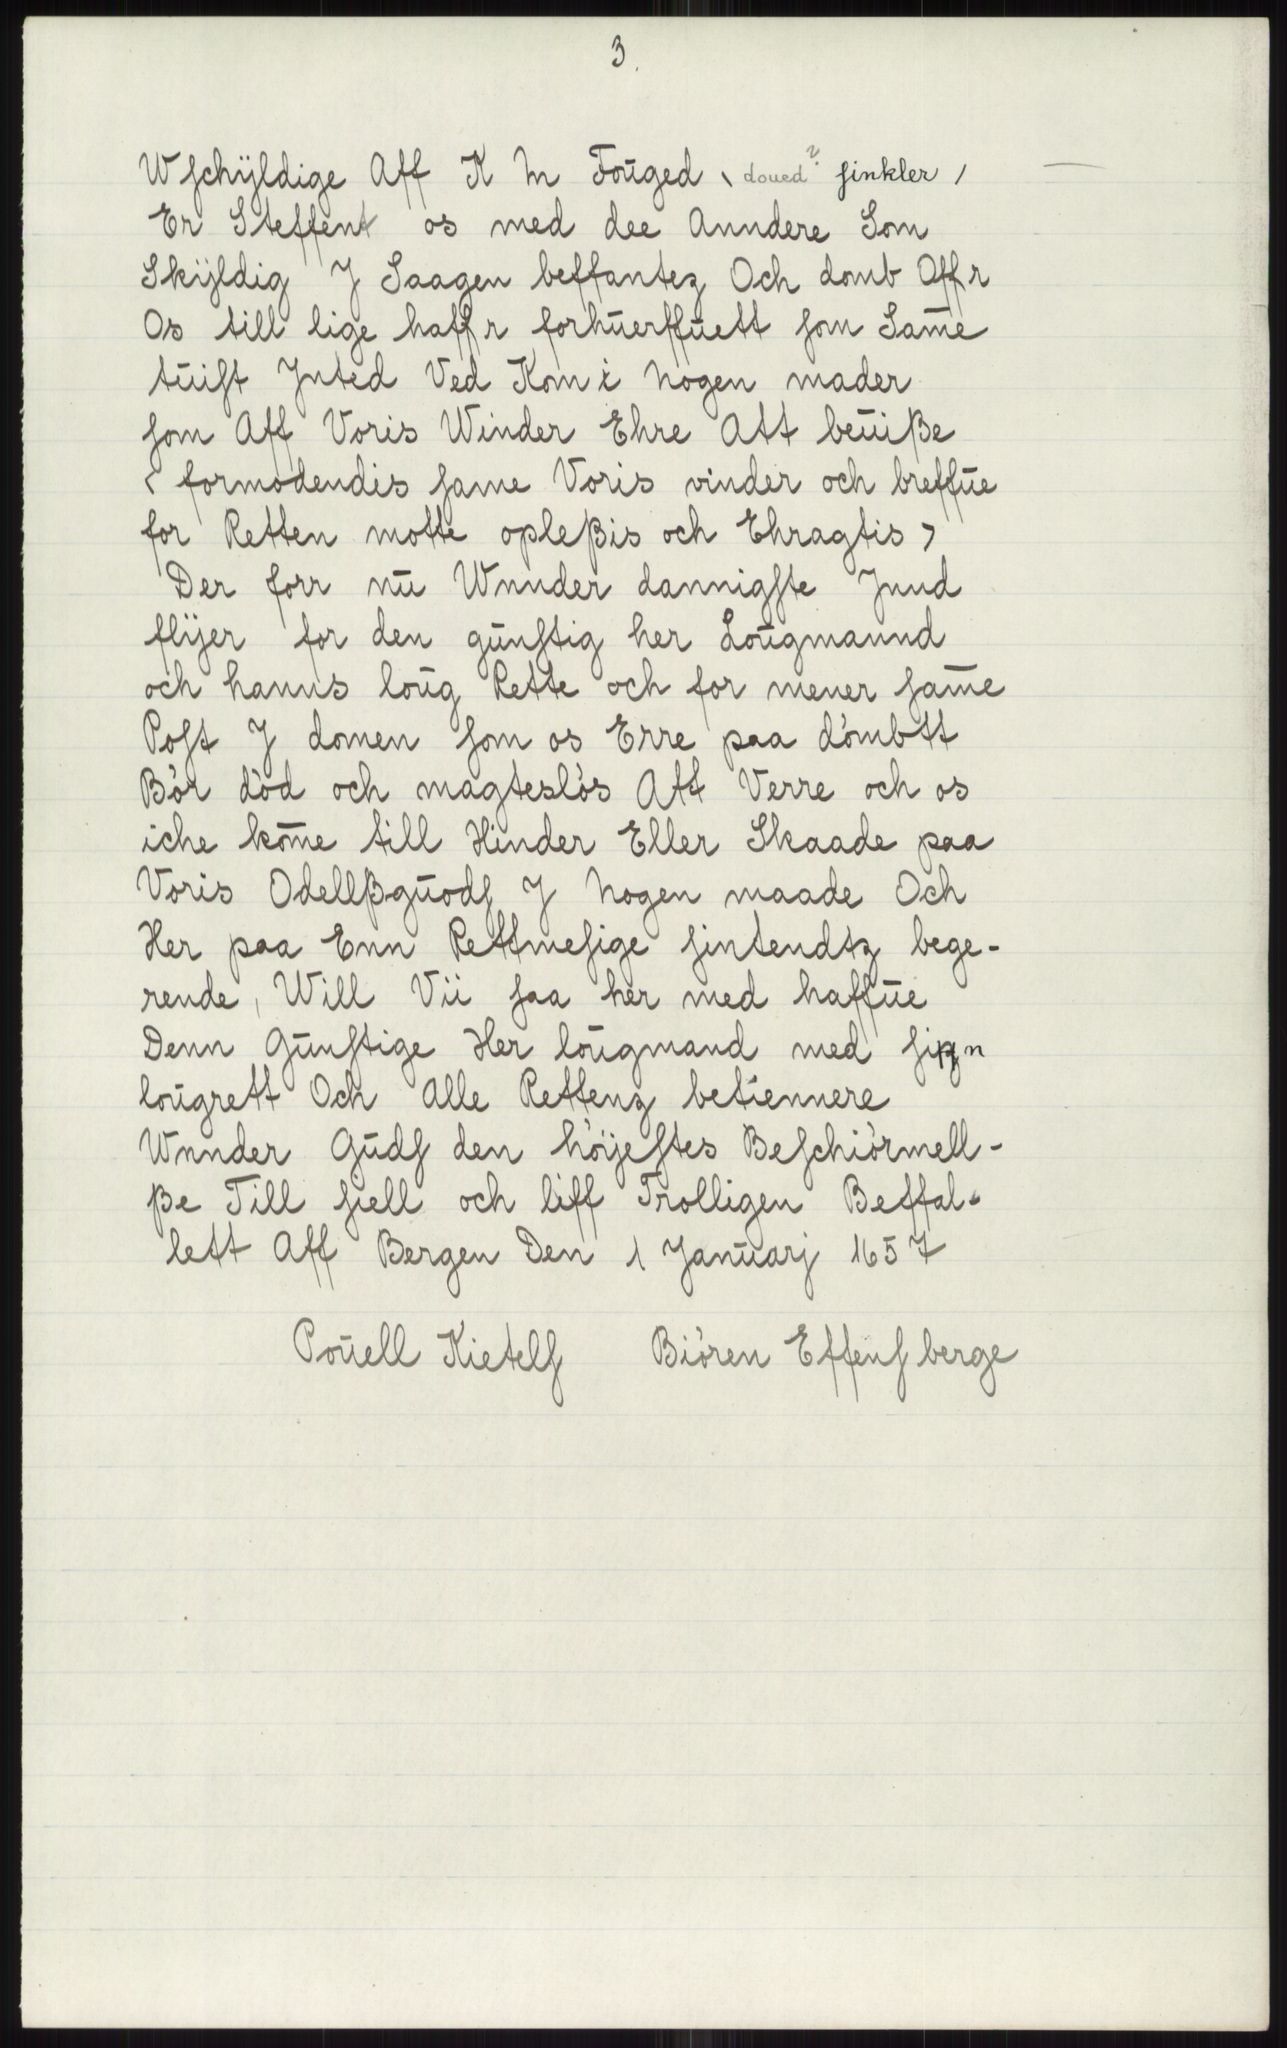 3.
Wſchÿldige Aff K M Foūged ( doued? ſinkler /
Er Steffent os med dee Anndere Som
Skÿldig J Saagen beffantez Och domb Aff r
Os till lige haff r forhūerffūett ſom Sam̄e
tūiſt Jnted Ved Kom i nogen mader
ſom Aff Voris Winder Ehre Att beūiße
( formodendis ſame Voris vinder och breffūe
for Retten motte opleßis och Ehragtis )
Der forr nū Wnnder dannigſte Jnnd
flÿer for den gūnſtig her Loūgmannd
och hanns loūg Rette och for mener ſam̄e
Poſt J domen ſom os Erre paa dómbtt
Bór dód och magteslós Att Verre och os
iche kom̄e till Hinder Eller Skaade paa
Voris Odellßgūodſ J nogen maade Och
Her paa Enn Rettmeſige ſintendtz bege-
rende, Will Vii ſaa her med haffūe
Denn Gūnſtige Her loūgmand med ſinn
loūgrett Och Alle Rettenz betiennere
Wnnder Gūdſ den hóijeſtes Beſchiórmell-
ße Till ſiell och liff Trolligen Beffal-
lett Aff Bergen Den 1 Janūarj 1657
Poūell Kietelſ Bióren Effenſberge